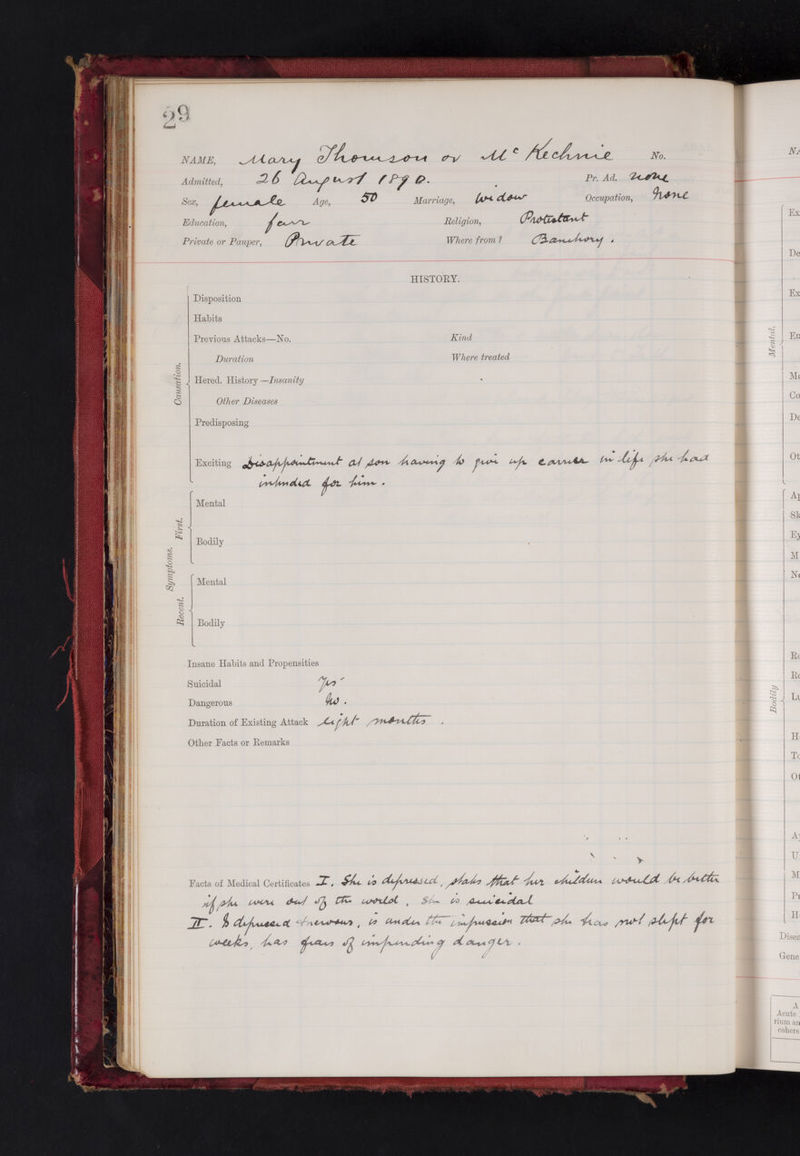 29
NAME, Mary Thomson or McKechnie No.
Admitted, 26 August 1890. Pr. Ad. none
Sex, female Age, 50 Marriage, widow Occupation, None
Education, fair Religion, Protestant
Private or Pauper, Private Where from? Banchory.
HISTORY.
Disposition
Habits
Previous Attacks—No. Kind
Duration Where treated
Hered. History—Insanity
Other Diseases
Predisposing
Causation.
Exciting Disappointment at son having to give up career in life she had
intended for him.
Mental
Bodily
First.
Symptoms.
Mental
Bodily
Recent.
Insane Habits and Propensities
Suicidal Yes
Dangerous No.
Duration of Existing Attack eight months.
Other Facts or Remarks
Facts of Medical Certificates I. She is depressed, states that her children would be better
if she were out of the world, She is suicidal
II. Is depressed & nervous, is under the impression that she has not slept for
weeks, has fears of impending danger.
Mental.
Bodily
Acute